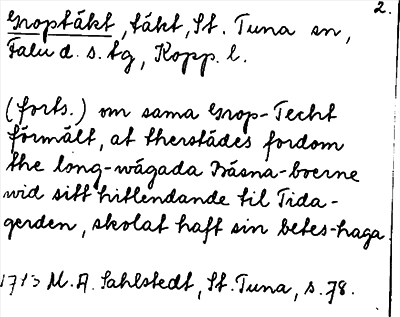 2.
Groptäkt, täkt, St. Tuna sn,
Falu d. s. tg, Kopp. l.
(forts.) om sama Grop-Techt
förmält, at therstädes fordom
the long-wägada Näsna-boerne
wid sitt hitlendande til Tida-
gerden, skolat haft sin betes-haga.
1713 M. A. Sahlstedt, St. Tuna, s. 78.